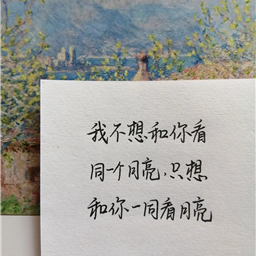 我不想和你看
同一个月亮，只想
和你一同看月亮